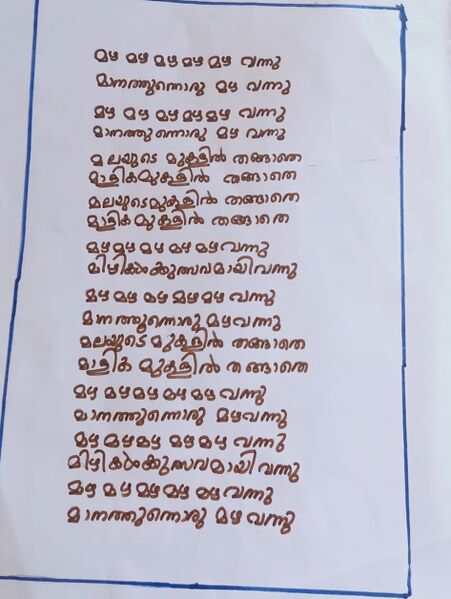 മഴ മഴ മഴ മഴ മഴ വന്നു
മാനത്തുന്നൊരു മഴ വന്നു
മഴ മഴ മഴ മഴ മഴ വന്നു
മാനത്തുന്നൊരു മഴ വന്നു
മലയുടെ മുകളിൽ തങ്ങാതെ
മാളികമുകളിൽ തങ്ങാതെ
മലയുടെ മുകളിൽ തങ്ങാതെ
മാളിക മുകളിൽ തങ്ങാതെ
മഴ മഴ മഴ മഴ മഴ വന്നു
മിഴികൾക്കുത്സവമായി വന്നു
മഴ മഴ മഴ മഴ മഴ വന്നു
മാനത്തുന്നൊരു മഴ വന്നു
മലയുടെ മുകളിൽ തങ്ങാതെ
മാളിക മുകളിൽ തങ്ങാതെ
മഴ മഴ മഴ മഴ മഴ വന്നു
മാനത്തുന്നൊരു മഴ വന്നു
മഴ മഴ മഴ മഴ മഴ വന്നു
മിഴികൾക്കുത്സവമായി വന്നു
മഴ മഴ മഴ മഴ മഴ വന്നു
മാനത്തുന്നൊരു മഴ വന്നു